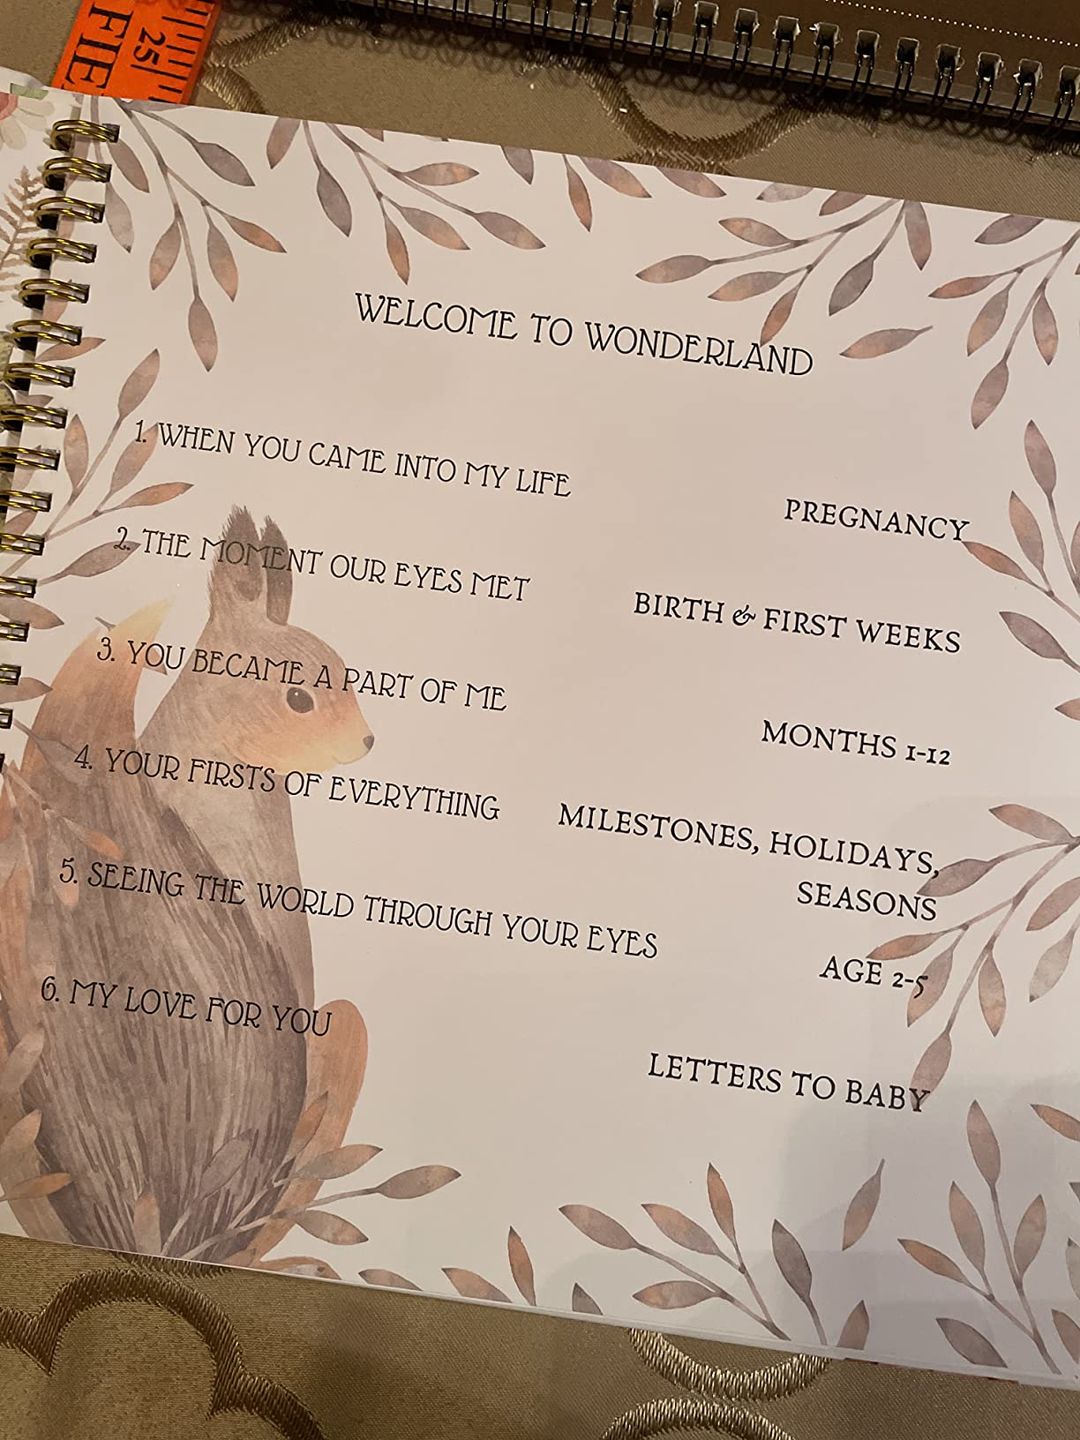 FIE
25
WELCOME TO WONDERLAND
1. WHEN YOU CAME INTO MY LIFE
PREGNANCY
2. THE MOMENT OUR EYES MET
BIRTH & FIRST WEEKS
3. YOU BECAME A PART OF ME
MONTHS 1-12
4. YOUR FIRSTS OF EVERYTHING
MILESTONES, HOLIDAYS,
SEASONS
5. SEEING THE WORLD THROUGH YOUR EYES
AGE 2-5
6. MY LOVE FOR YOU
LETTERS TO BABY